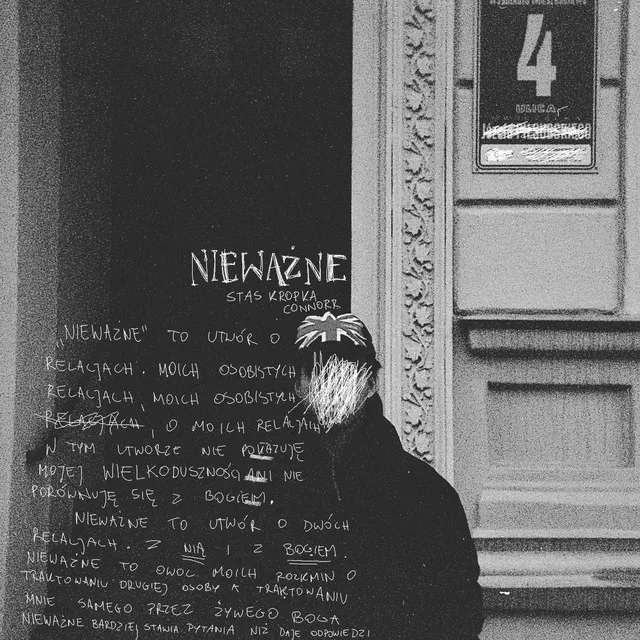 4
ULICA
NIEWAŻNE
STAS KROPKA
CONNORR
"NIEWAŻNE" TO UTWÓR O
RELACJACH. MOICH OSOBISTYCH
RELACJACH, MOICH OSOBISTYCH
RELACJACH, O MOICH RELACJACH
W TYM UTWORZE NIE POKAZUJĘ
MOJEJ WIELKODUSZNOŚCI ANI NIE
PORÓWNUJĘ SIĘ Z BOGIEM.
NIEWAŻNE TO UTWÓR O DWÓCH
RELACJACH. Z NIĄ I Z BOGIEM.
NIEWAŻNE TO OWOC MOICH ROZKMIN O
TRAKTOWANIU DRUGIEJ OSOBY A TRAKTOWANIU
MNIE SAMEGO PRZEZ ŻYWEGO BOGA
NIEWAŻNE BARDZIEJ STAWIA PYTANIA NIŻ DAJE ODPOWIEDZI